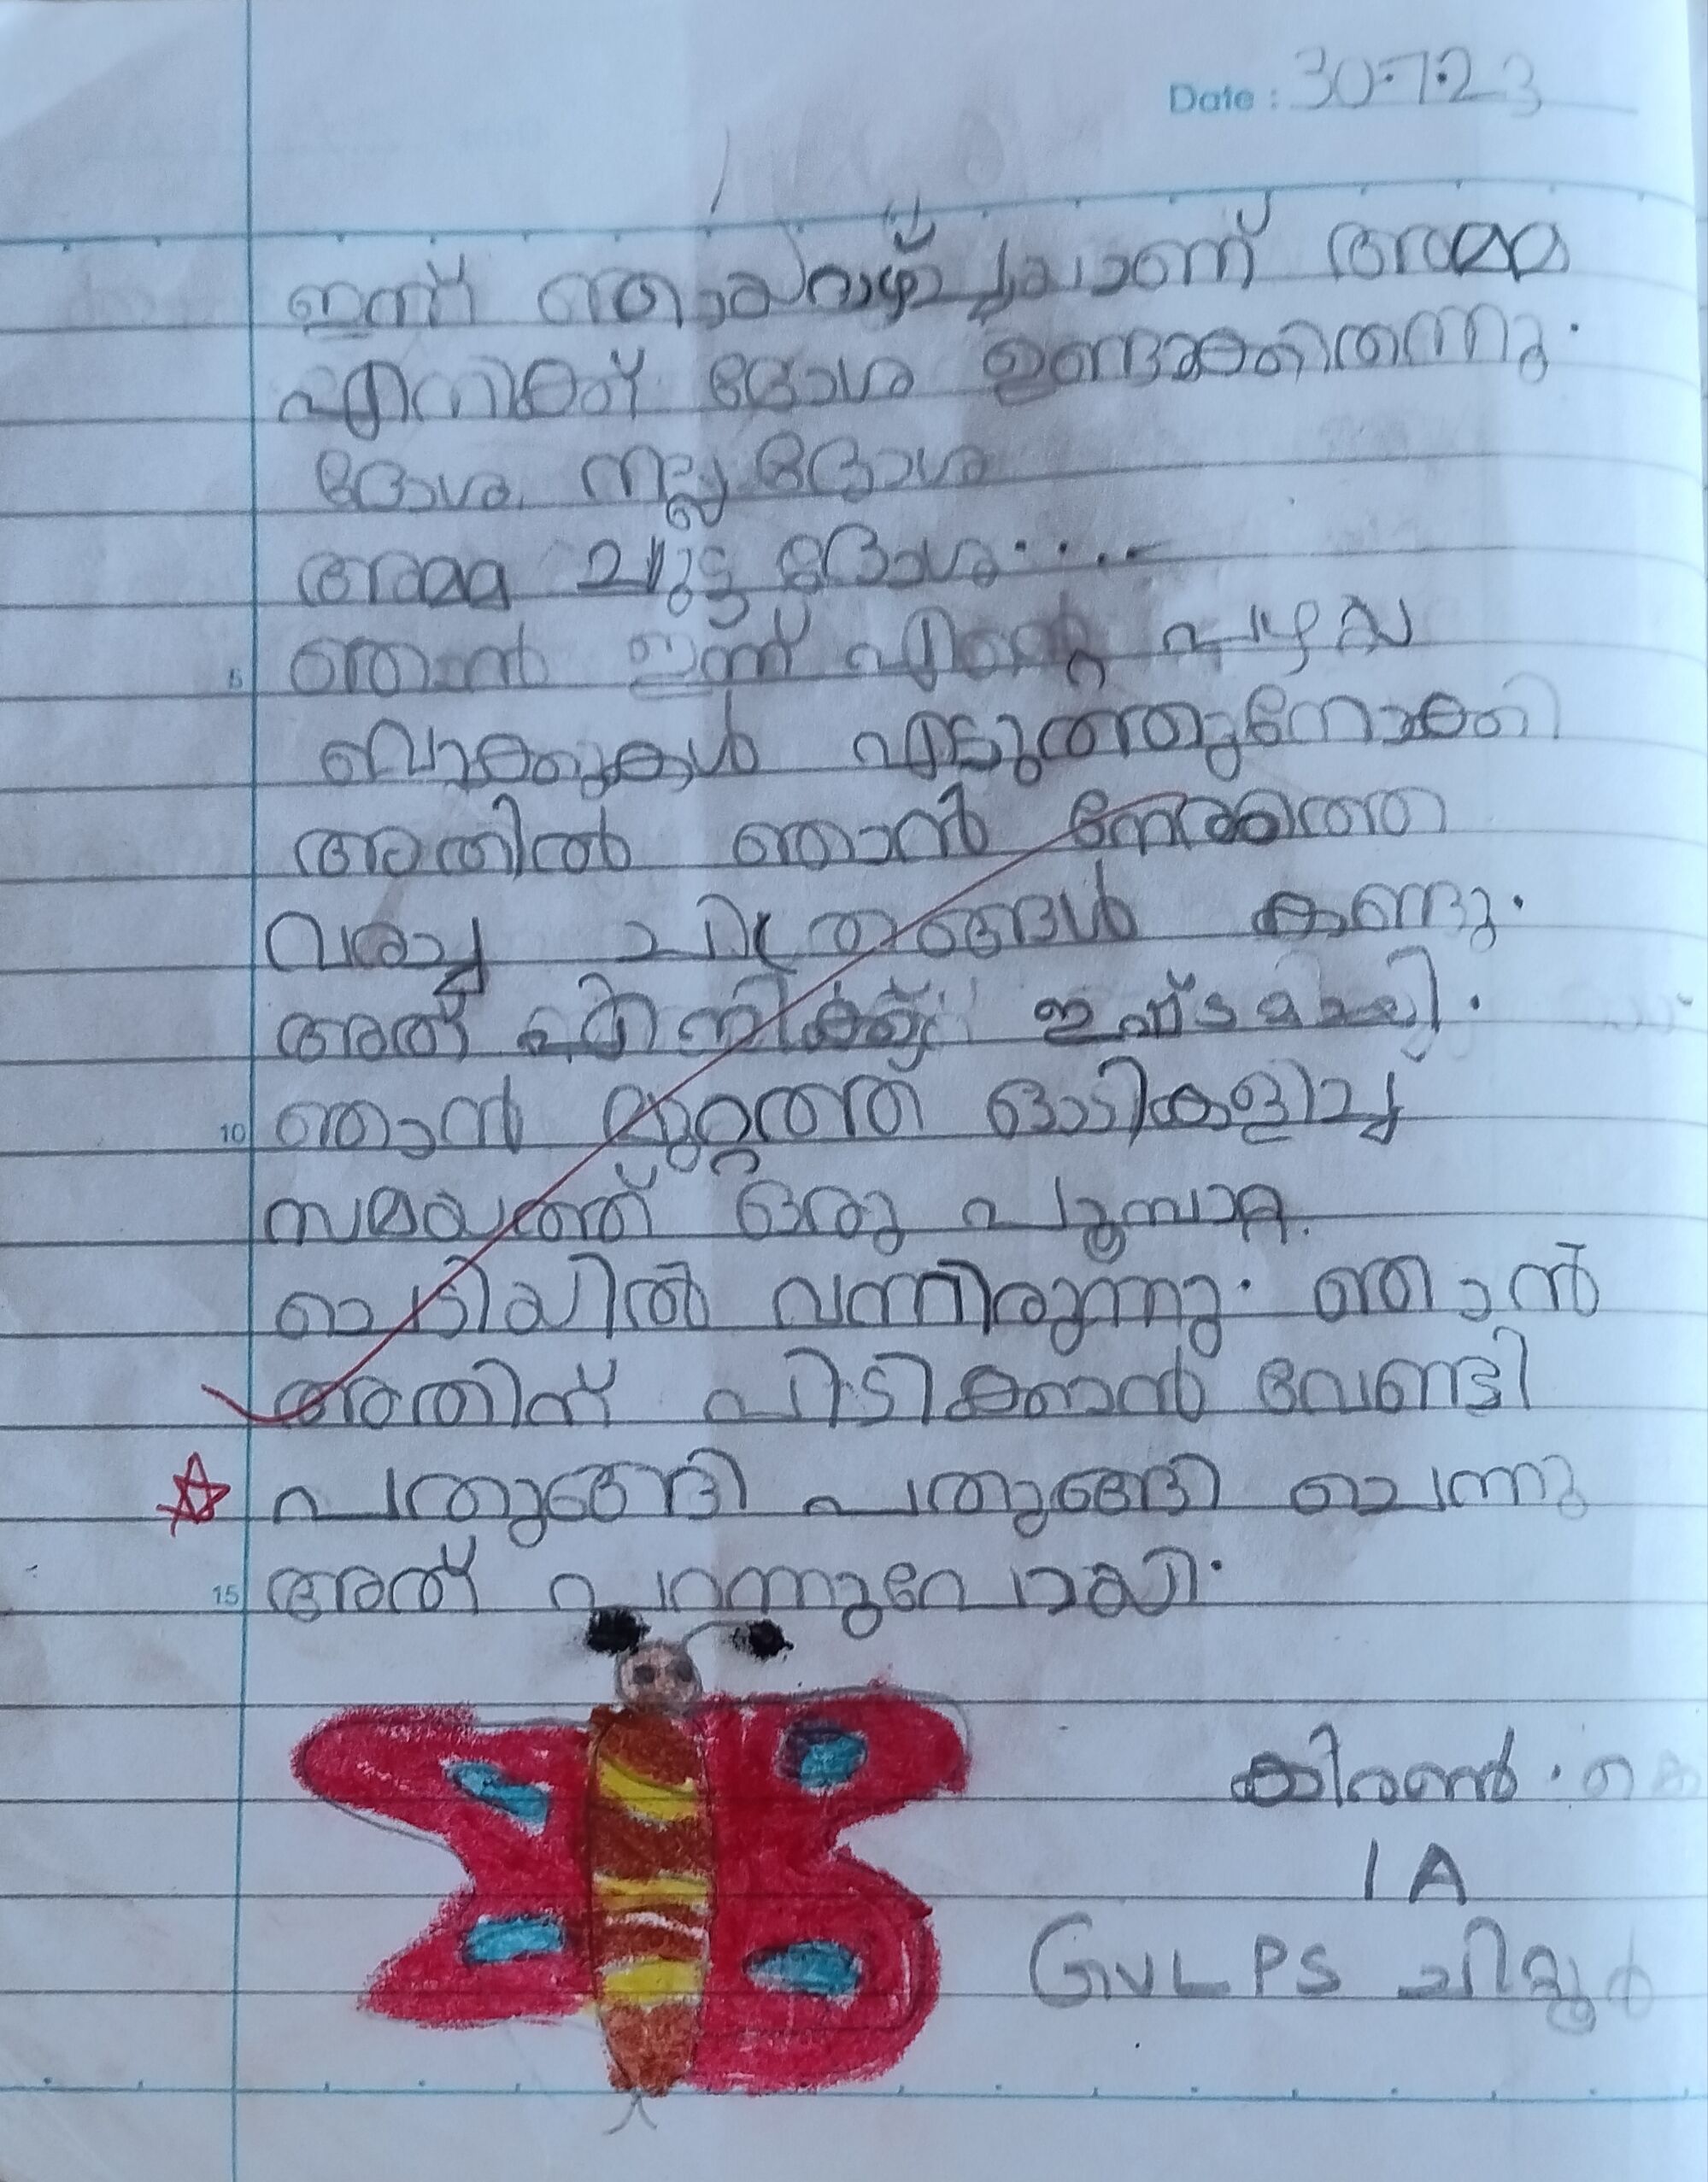 Date : 30.7.23
ഇന്ന് ഞായറാഴ്ച്ചയാണ് അമ്മ
എനിക്ക് ദോശ ഉണ്ടാക്കിതന്നു.
ദോശ നല്ല ദോശ
അമ്മ ചുട്ട ദോശ.....
5 ഞാൻ ഇന്ന് എന്റെ പഴയ
ബുക്കുകൾ എടുത്തുനോക്കി
അതിൽ ഞാൻ നേരത്തെ
വരച്ച ചിത്രങ്ങൾ കണ്ടു.
അത് എനിക്ക് ഇഷ്ടമായി.
10 ഞാൻ മുറ്റത്ത് ഓടികളിച്ച
സമയത്ത് ഒരു പൂമ്പാറ്റ.
ചെടിയിൽ വന്നിരുന്നു. ഞാൻ
അതിന് പിടിക്കാൻ വേണ്ടി
പതുങ്ങി പതുങ്ങി ചെന്നു
15 അത് പറന്നുപോയി.
കിരൺ. കെ
1 A
GVLPS ചിറ്റൂർ